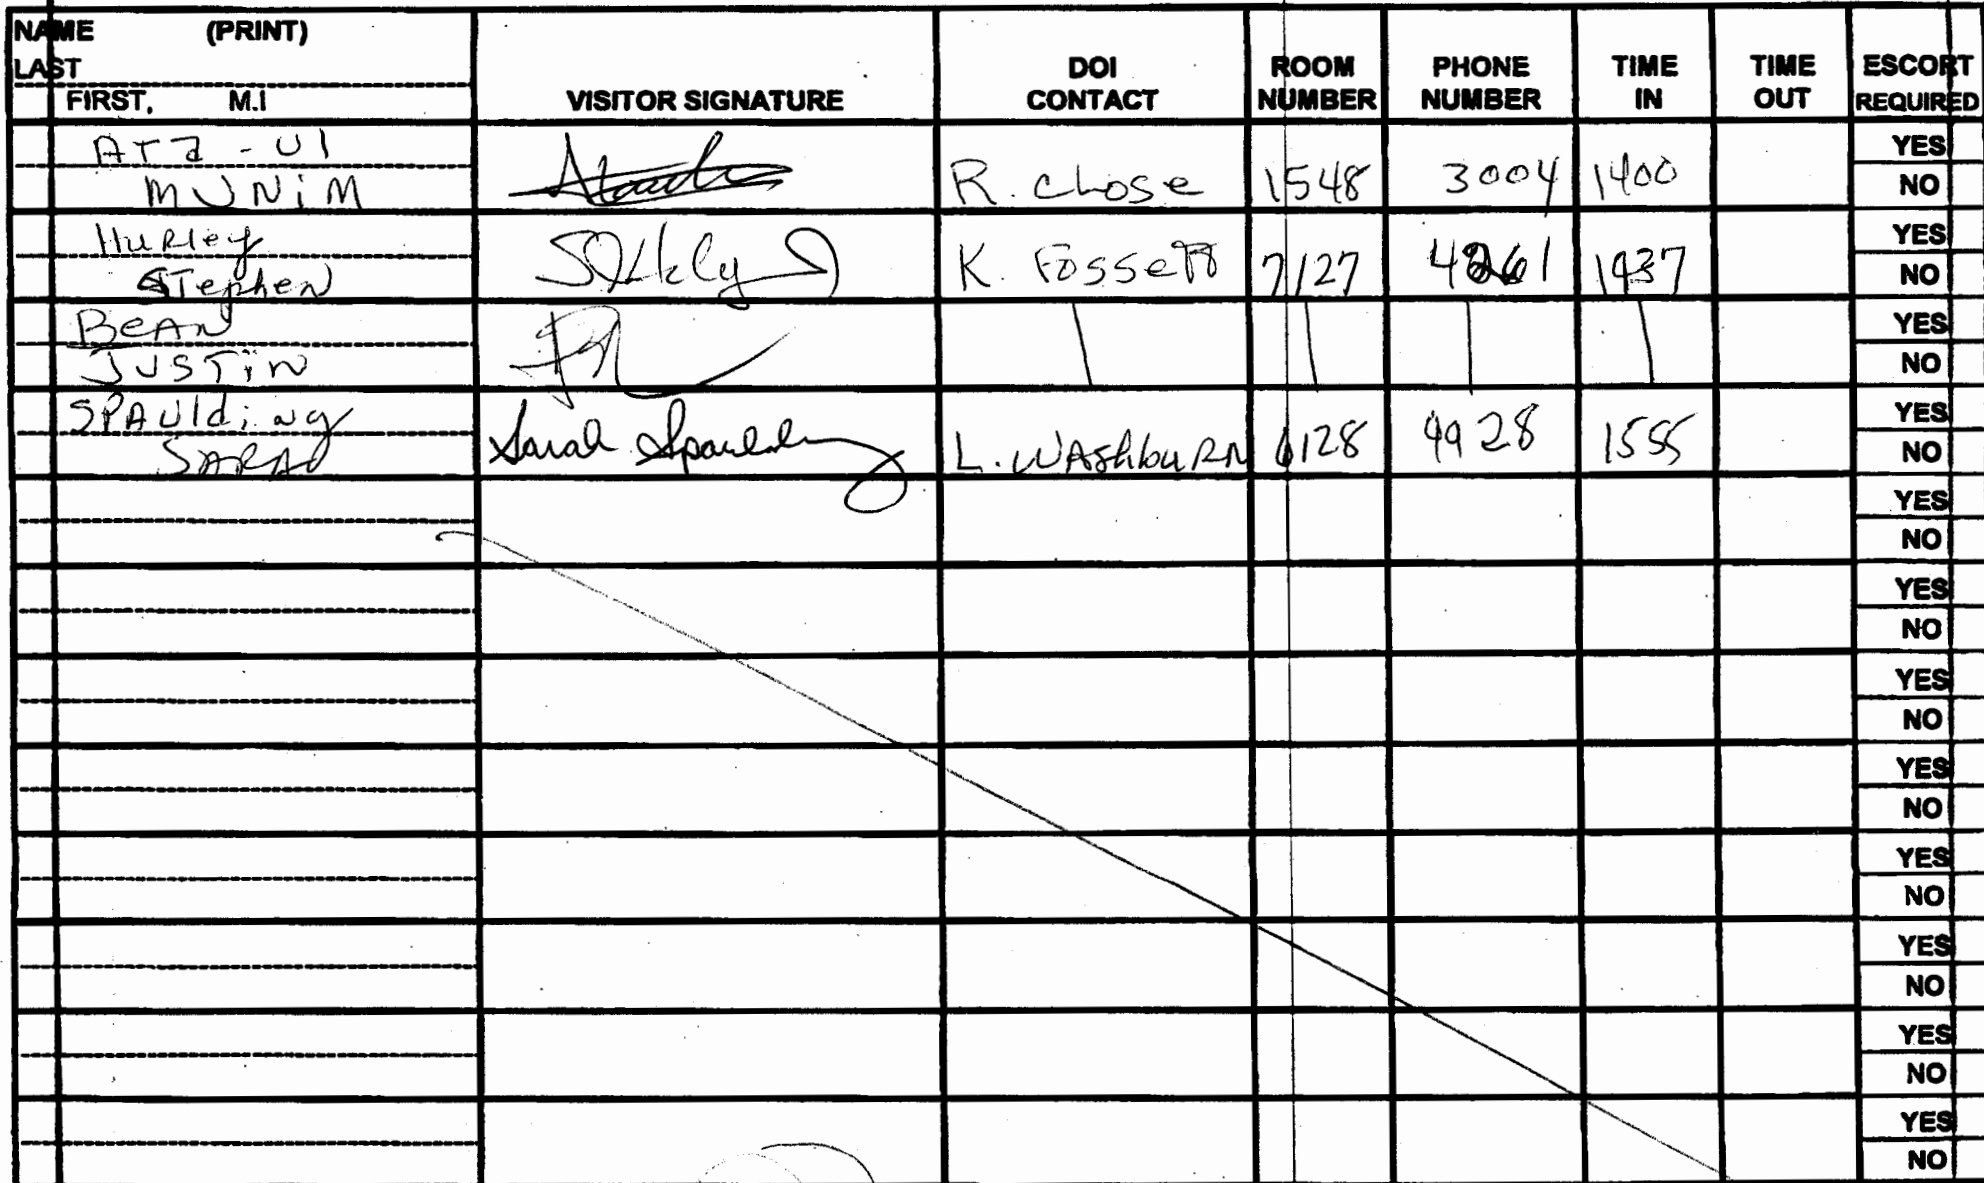 NAME (PRINT)
LAST
FIRST, M.I
VISITOR SIGNATURE
DOI
CONTACT
ROOM
NUMBER
PHONE
NUMBER
TIME
IN
TIME
OUT
ESCORT
REQUIRED
ATa - Ul
MUNiM
R. chose
1548
3004
1400
YES
NO
HuRley
STepheN
K. FosseTT
7127
4261
1437
YES
NO
BeAN
JUSTiN
YES
NO
SPAUldiNg
SARAh
Sarah Spaulding
L. WAShbuRN
6128
4928
1555
YES
NO
YES
NO
YES
NO
YES
NO
YES
NO
YES
NO
YES
NO
YES
NO
YES
NO